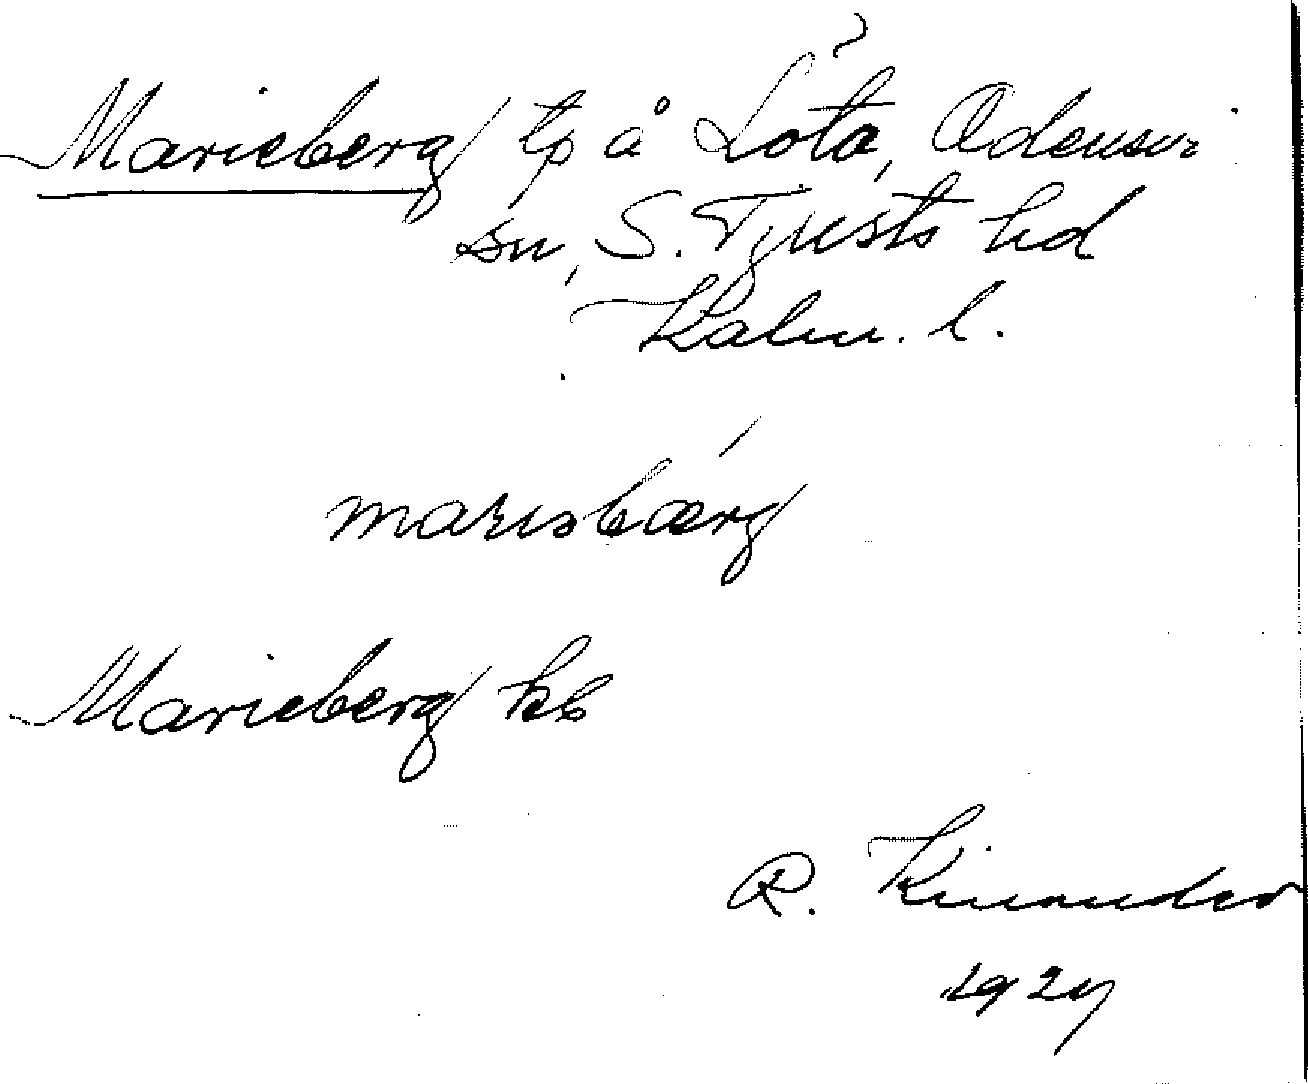 Marieberg tp å Lota, Odensvi
sn, S. Tjusts hd
Kalm. l.
marisbærg
Marieberg kb
R. Kinander
1927